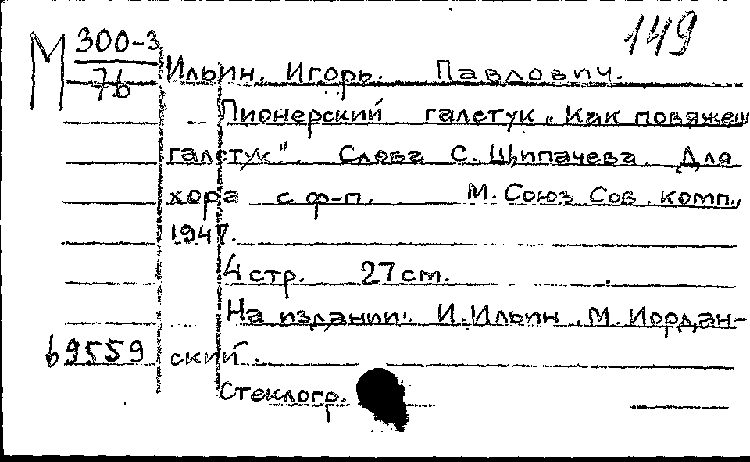 149
М 300-3
76
Ильин. Игорь. Павлович.
Пионерский галстук „Как повяжеш
галстук". Слова С. Щипачева. Для
хора с ф-п. М. Союз Сов. комп.,
1947.
4 стр. 27 см.
На издании: И. Ильин, М. Иордан-
69559 ский.
Стеклогр.